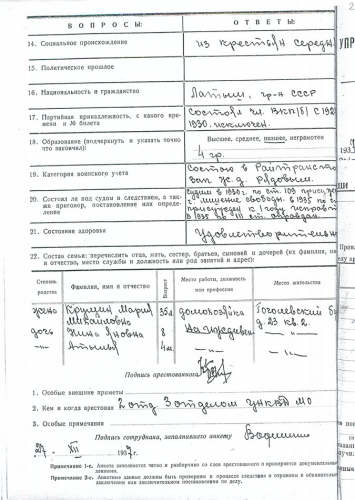 ВОПРОСЫ: ОТВЕТЫ:
14. Социальное происхождение из крестьян середн.
15. Политическое прошлое
16. Национальность и гражданство Латыш, гр-н СССР
17. Партийная принадлежность, с какого времени и № билета Состоял чл. ВКП(б) с 192
1930. исключен.
18. Образование (подчеркнуть и указать точно что закончил): Высшее, среднее, низшее, неграмотен
4 гр.
19. Категория воинского учета Состою в
зап. ж. д. Рядовым.
20. Состоял ли под судом и следствием, а также приговор, постановление или определение судим в 1930г. по ст. 109
лишение свободы. в 1935
к 1 году
в 1935 по III ст. оправдан.
21. Состояние здоровья Удовлетворительно
22. Состав семьи: перечислить отца, мать, сестер, братьев, сыновей и дочерей (их фамилия, имя
и отчество, место службы и должность или род занятий и адрес):
Степень родства Фамилия, имя и отчество Возраст Место работы, должность или профессия Место жительства
жена Крумин Мария Михайловна 35л домохозяйка Гоголевский
д. 23 кв. 2.
дочь Нина Яновна 8 На иждивен. —„—
—„— 4м —„— —„—
Подпись арестованного
1. Особые внешние приметы
2. Кем и когда арестован 2 отд 3 отделом УНКВД МО
3. Особые примечания
Подпись сотрудника, заполнявшего анкету
„29“ XII 1937 г.
Примечание 1-е. Анкета заполняется четко и разборчиво со слов арестованного и проверяется документальными
данными.
Примечание 2-е. Анкетные данные должны быть проверены в процессе следствия и отражены в обвинительном
заключении или заключительном постановлении по делу.
УПР